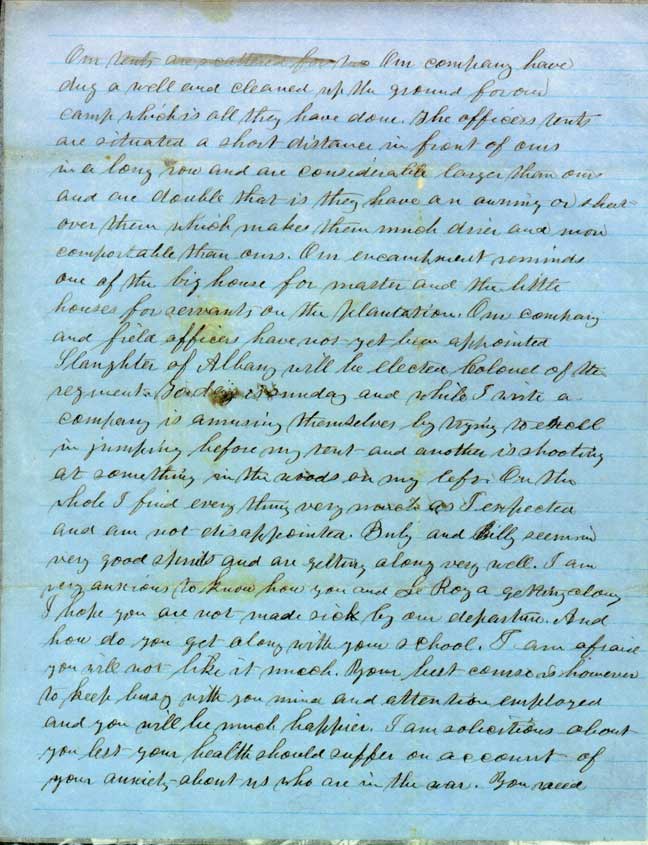 Our tents are scattered for two Our company have
dug a well and cleaned up the ground for our
camp which is all they have done. The officers tents
are situated a short distance in front of ours
in a long row and are considerable larger than ours
and are double that is they have an awning or sheet
over them which makes them much drier and more
comfortable than ours. Our encampment reminds
one of the big house for master and the little
houses for servants on the plantation. Our company
and field officers have not yet been appointed
Slaughter of Albany will be elected Colonel of the
regment. To day is sunday and while I write a
company is amusing themselves by trying to excell
in jumping before my tent and another is shooting
at something in the woods on my left. On the
whole I find every thing very much as I expected
and am not disappointed. Buly and Billy seem in
very good spirits and are getting along very well. I am
very anxious to know how you and Le Roy a getting along
I hope you are not made sick by our departure. And
how do you get along with your school. I am afraid
you will not like it much. Your best course is however
to keep busy with you mind and attention employed
and you will be much happier. I am solicitious about
you lest your health should suffer on account of
your anxiety about us who are in the war. You need